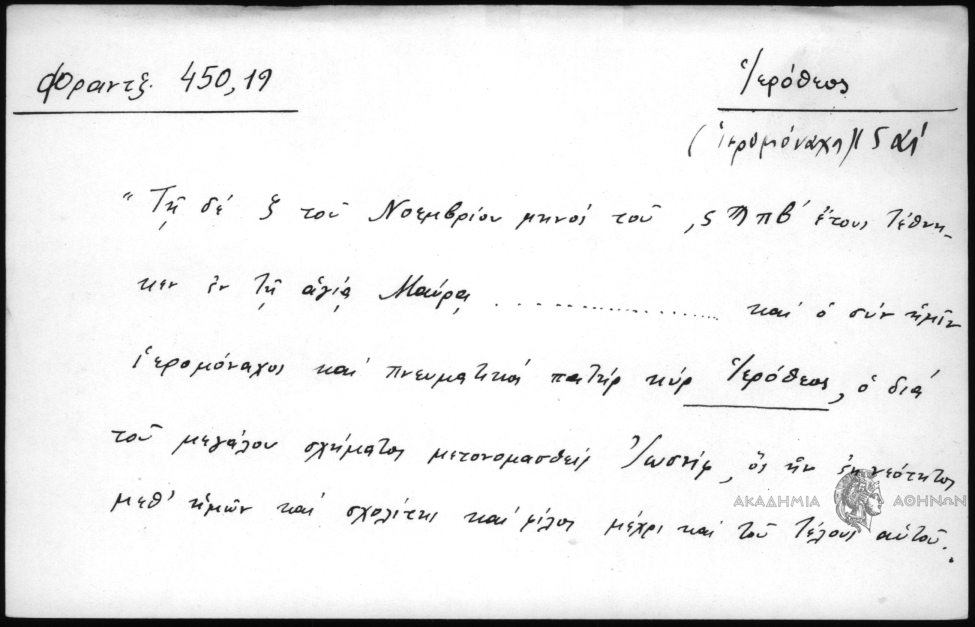 Φραντζ. 450,19
Ἱερόθεος
(ἱερομόναχος)
"Τῇ δέ ξ τοῦ Νοεμβρίου μηνός τοῦ ͵ϛϠπβ′ ἔτους τέθνη-
κεν ἐν τῇ ἁγίᾳ Μαύρᾳ .................. καί ὁ σύν ἡμῖν
ἱερομόναχος καί πνευματικός πατήρ κύρ Ἱερόθεος, ὁ διά
τοῦ μεγάλου σχήματος μετονομασθείς Ἰωσήφ, ὅς ἦν ἐκ νεότητος
μεθ' ἡμῶν καί σχολίτης καί φίλος μέχρι καί τοῦ τέλους αὐτοῦ.
ΑΚΑΔΗΜΙΑ ΑΘΗΝΩΝ